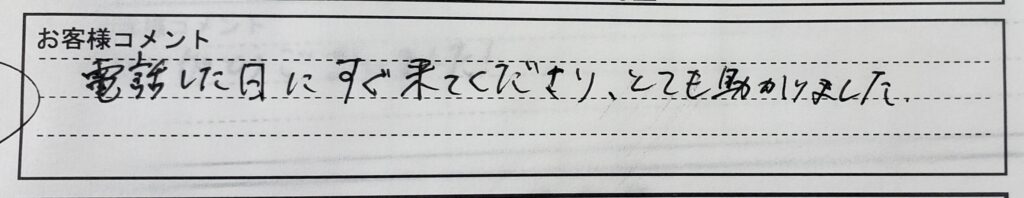 お客様コメント
電話した日にすぐ来てくださり、とても助かりました。